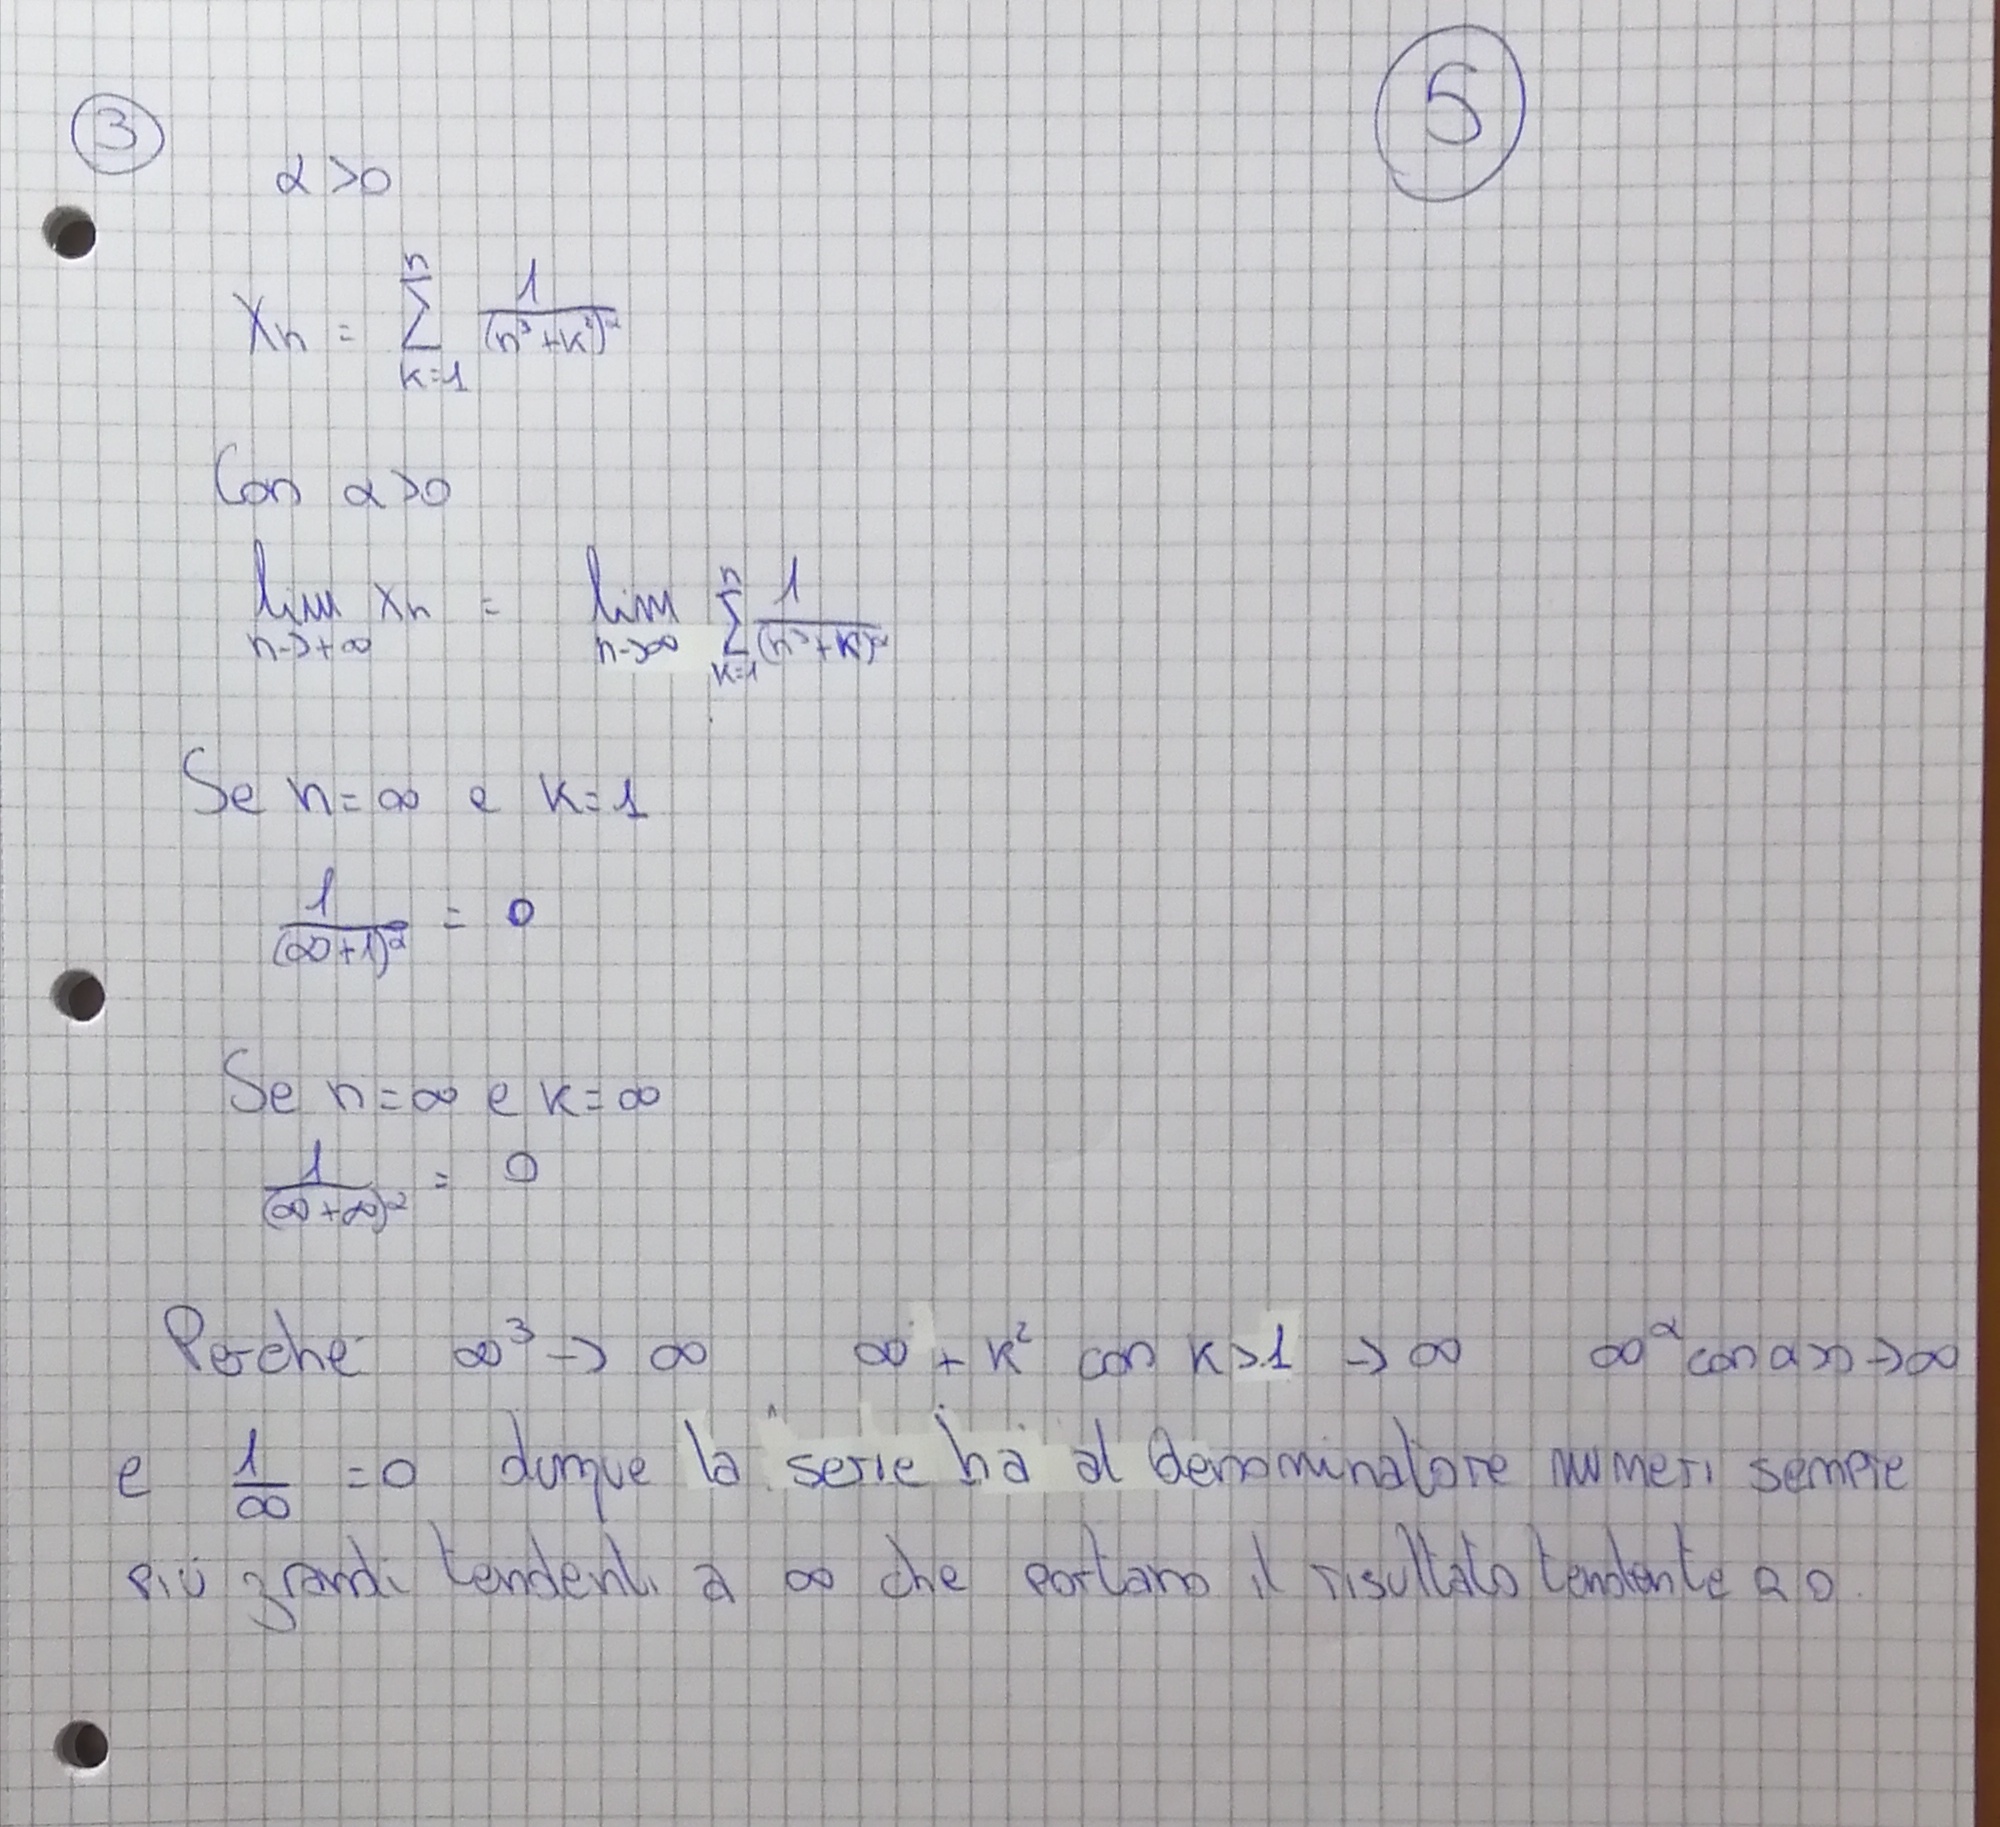 3
5
α>0
Xn = Σ_{k=1}^{n} 1/(n³+k²)^α
Con α>0
lim_{n->+∞} Xn = lim_{n->∞} Σ_{k=1}^{n} 1/(n³+k²)^α
Se n=∞ e k=1
1/(∞+1)^α = 0
Se n=∞ e k=∞
1/(∞+∞)^α = 0
Perché ∞³ -> ∞ ∞ + k² con k>1 -> ∞ ∞^α con α>0 -> ∞
e 1/∞ = 0 dunque la serie ha al denominatore numeri sempre
più grandi tendenti a ∞ che portano il risultato tendente a 0.